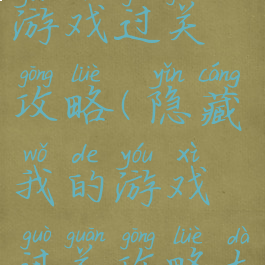 游戏过关
gōng lüè yǐn cáng
攻略(隐藏
wǒ de yóu xì
我的游戏
guò guān gōng lüè dà
过关攻略大